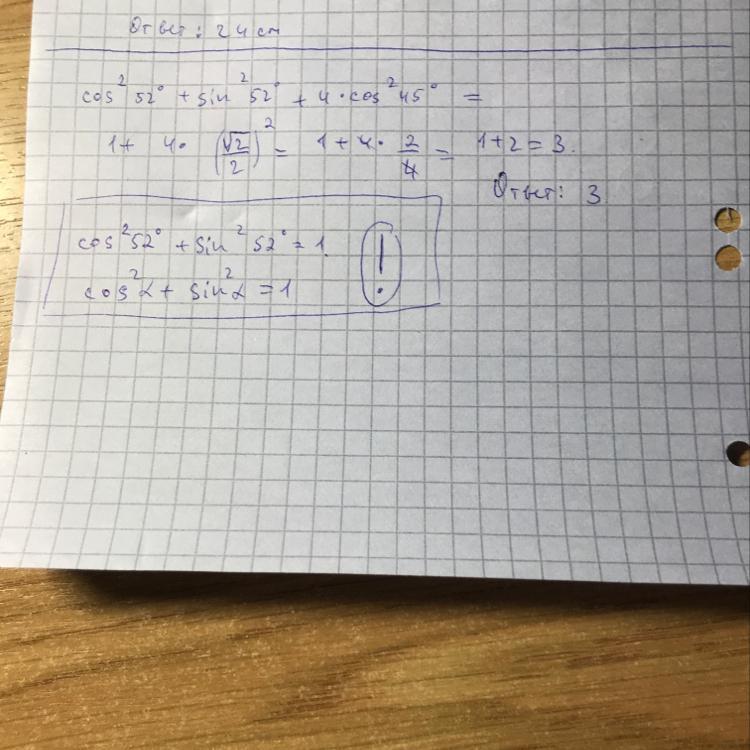 Ответ: 24 см
cos²52° + sin²52° + 4·cos²45° =
1 + 4·(√2/2)² = 1 + 4·2/4 = 1 + 2 = 3.
Ответ: 3
cos²52° + sin²52° = 1
cos²α + sin²α = 1 !